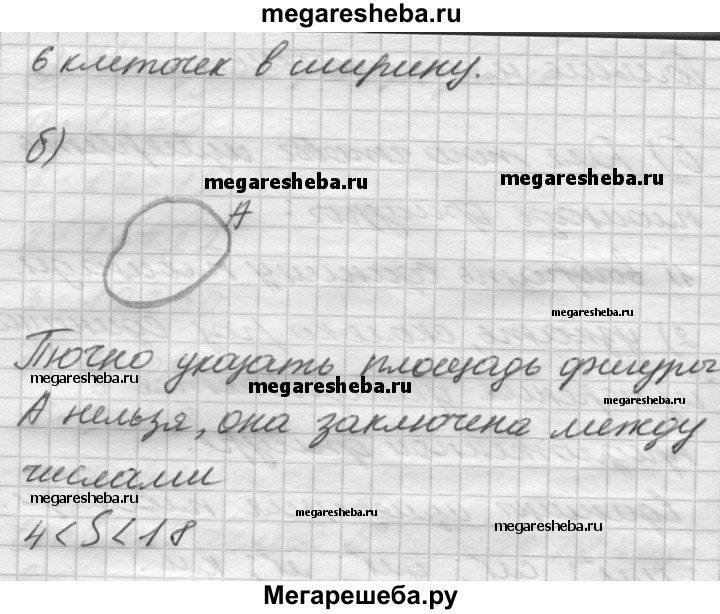 megaresheba.ru
6 клеточек в ширину.
б)
megaresheba.ru
megaresheba.ru
А
megaresheba.ru
Точно указать площадь фигуры
megaresheba.ru
megaresheba.ru
megaresheba.ru
А нельзя, она заключена между
числами
megaresheba.ru
megaresheba.ru
megaresheba.ru
4 < S < 18
Мегарешеба.ру